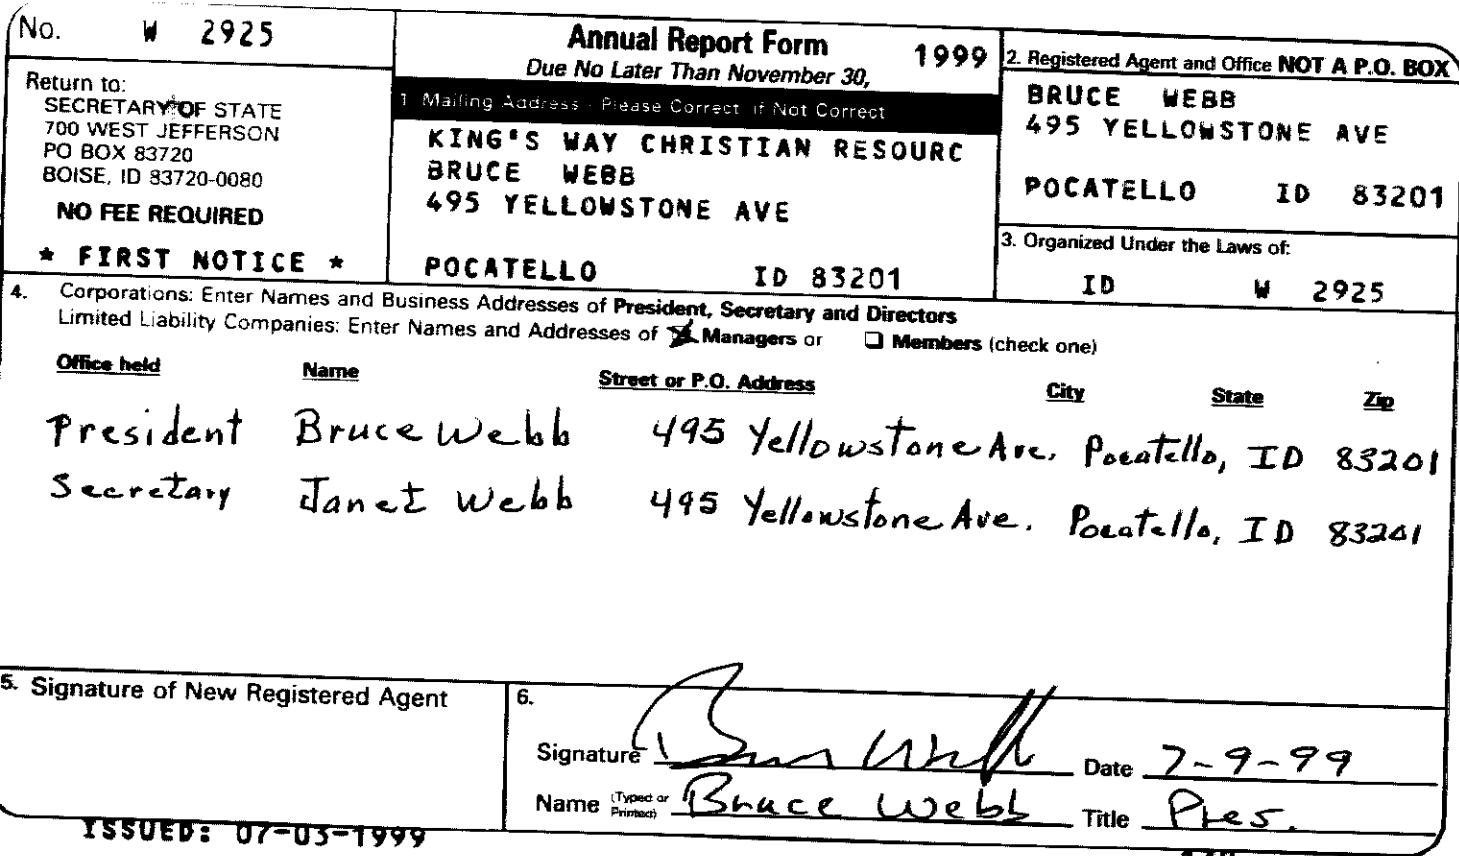 No. W 2925
Return to:
SECRETARY OF STATE
700 WEST JEFFERSON
PO BOX 83720
BOISE, ID 83720-0080
NO FEE REQUIRED
* FIRST NOTICE *
Annual Report Form 1999
Due No Later Than November 30,
1 Mailing Address - Please Correct If Not Correct
KING'S WAY CHRISTIAN RESOURC
BRUCE WEBB
495 YELLOWSTONE AVE
POCATELLO ID 83201
2. Registered Agent and Office NOT A P.O. BOX
BRUCE WEBB
495 YELLOWSTONE AVE
POCATELLO ID 83201
3. Organized Under the Laws of:
ID W 2925
4. Corporations: Enter Names and Business Addresses of President, Secretary and Directors
Limited Liability Companies: Enter Names and Addresses of Managers or Members (check one)
Office held Name Street or P.O. Address City State Zip
President Bruce Webb 495 Yellowstone Ave. Pocatello, ID 83201
Secretary Janet Webb 495 Yellowstone Ave. Pocatello, ID 83201
5. Signature of New Registered Agent
6.
Signature Bruce Webb Date 7-9-99
Name (Typed or Printed) Bruce Webb Title Pres.
ISSUED: 07-03-1999